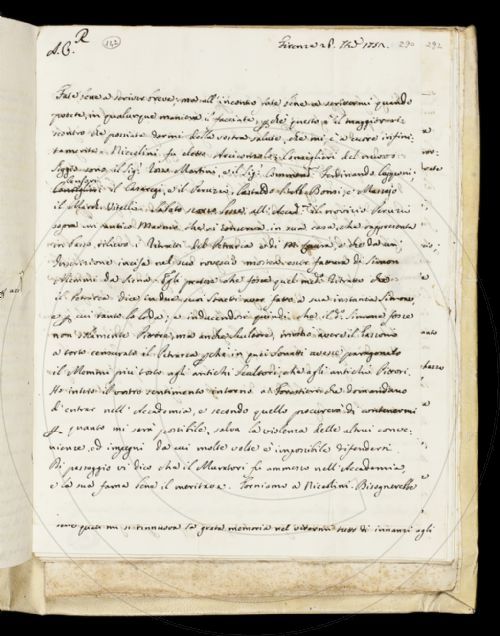 A. C. R
142
Firenze 28. 7bre 1751.
290 292
Fate bene a scriver breve; ma all'incontro fate bene a scrivermi quando
potete, in qualunque maniera il facciate, perchè questo è il maggior
contro che possiate darmi della vostra salute, che mi è a cuore infini-
tamente. Niccolini fu eletto Arciconsolo; Consiglieri del nuovo
Seggio sono il Sig. Martini, e il Sig. Commend. Ferdinando Capponi:
Censori
il Casaregi, e il Peruzzi, Bonsi, e
il March. Vitelli. Saluto Accad. il novizio Peruzzi
sopra un antico Marmo che si conserva in sua casa, che rappresenta
in basso rilievo i Ritratti del Petrarca e di M. Laura, e che da un'
Inscrizione incisa nel suo rovescio mostra esser fattura di Simon
Memmi da Siena. Egli pretese che fosse quel med. Ritratto che
il Petrarca dice in due suoi Sonetti aver fatto a sua instanza Simone,
e per cui tanto lo loda; e inducendosi quindi che il d. Simone fosse
non solamente Pittore, ma anche Scultore, mostrò avere il Tassoni
a torto censurato il Petrarca perchè in quei Sonetti avesse paragonato
il Memmi più tosto agli antichi Scultori, che agli antichi Pittori.
Ho inteso il vostro sentimento intorno a' Forestieri che domandano
d'entrar nell'Accademia, e secondo quello procurerò di contenermi
per quanto mi sarà possibile, salva la violenza delle altrui conve-
nienze, ed impegni da cui molte volte è impossibile difendersi.
Di passaggio vi dico che il Muratori fu ammesso nell'Accademia,
e la sua fama bene il meritava. Torniamo a Niccolini. Bisognerebbe
mi si rinnuova la grata memoria nel vedermi tutto dì innanzi agli